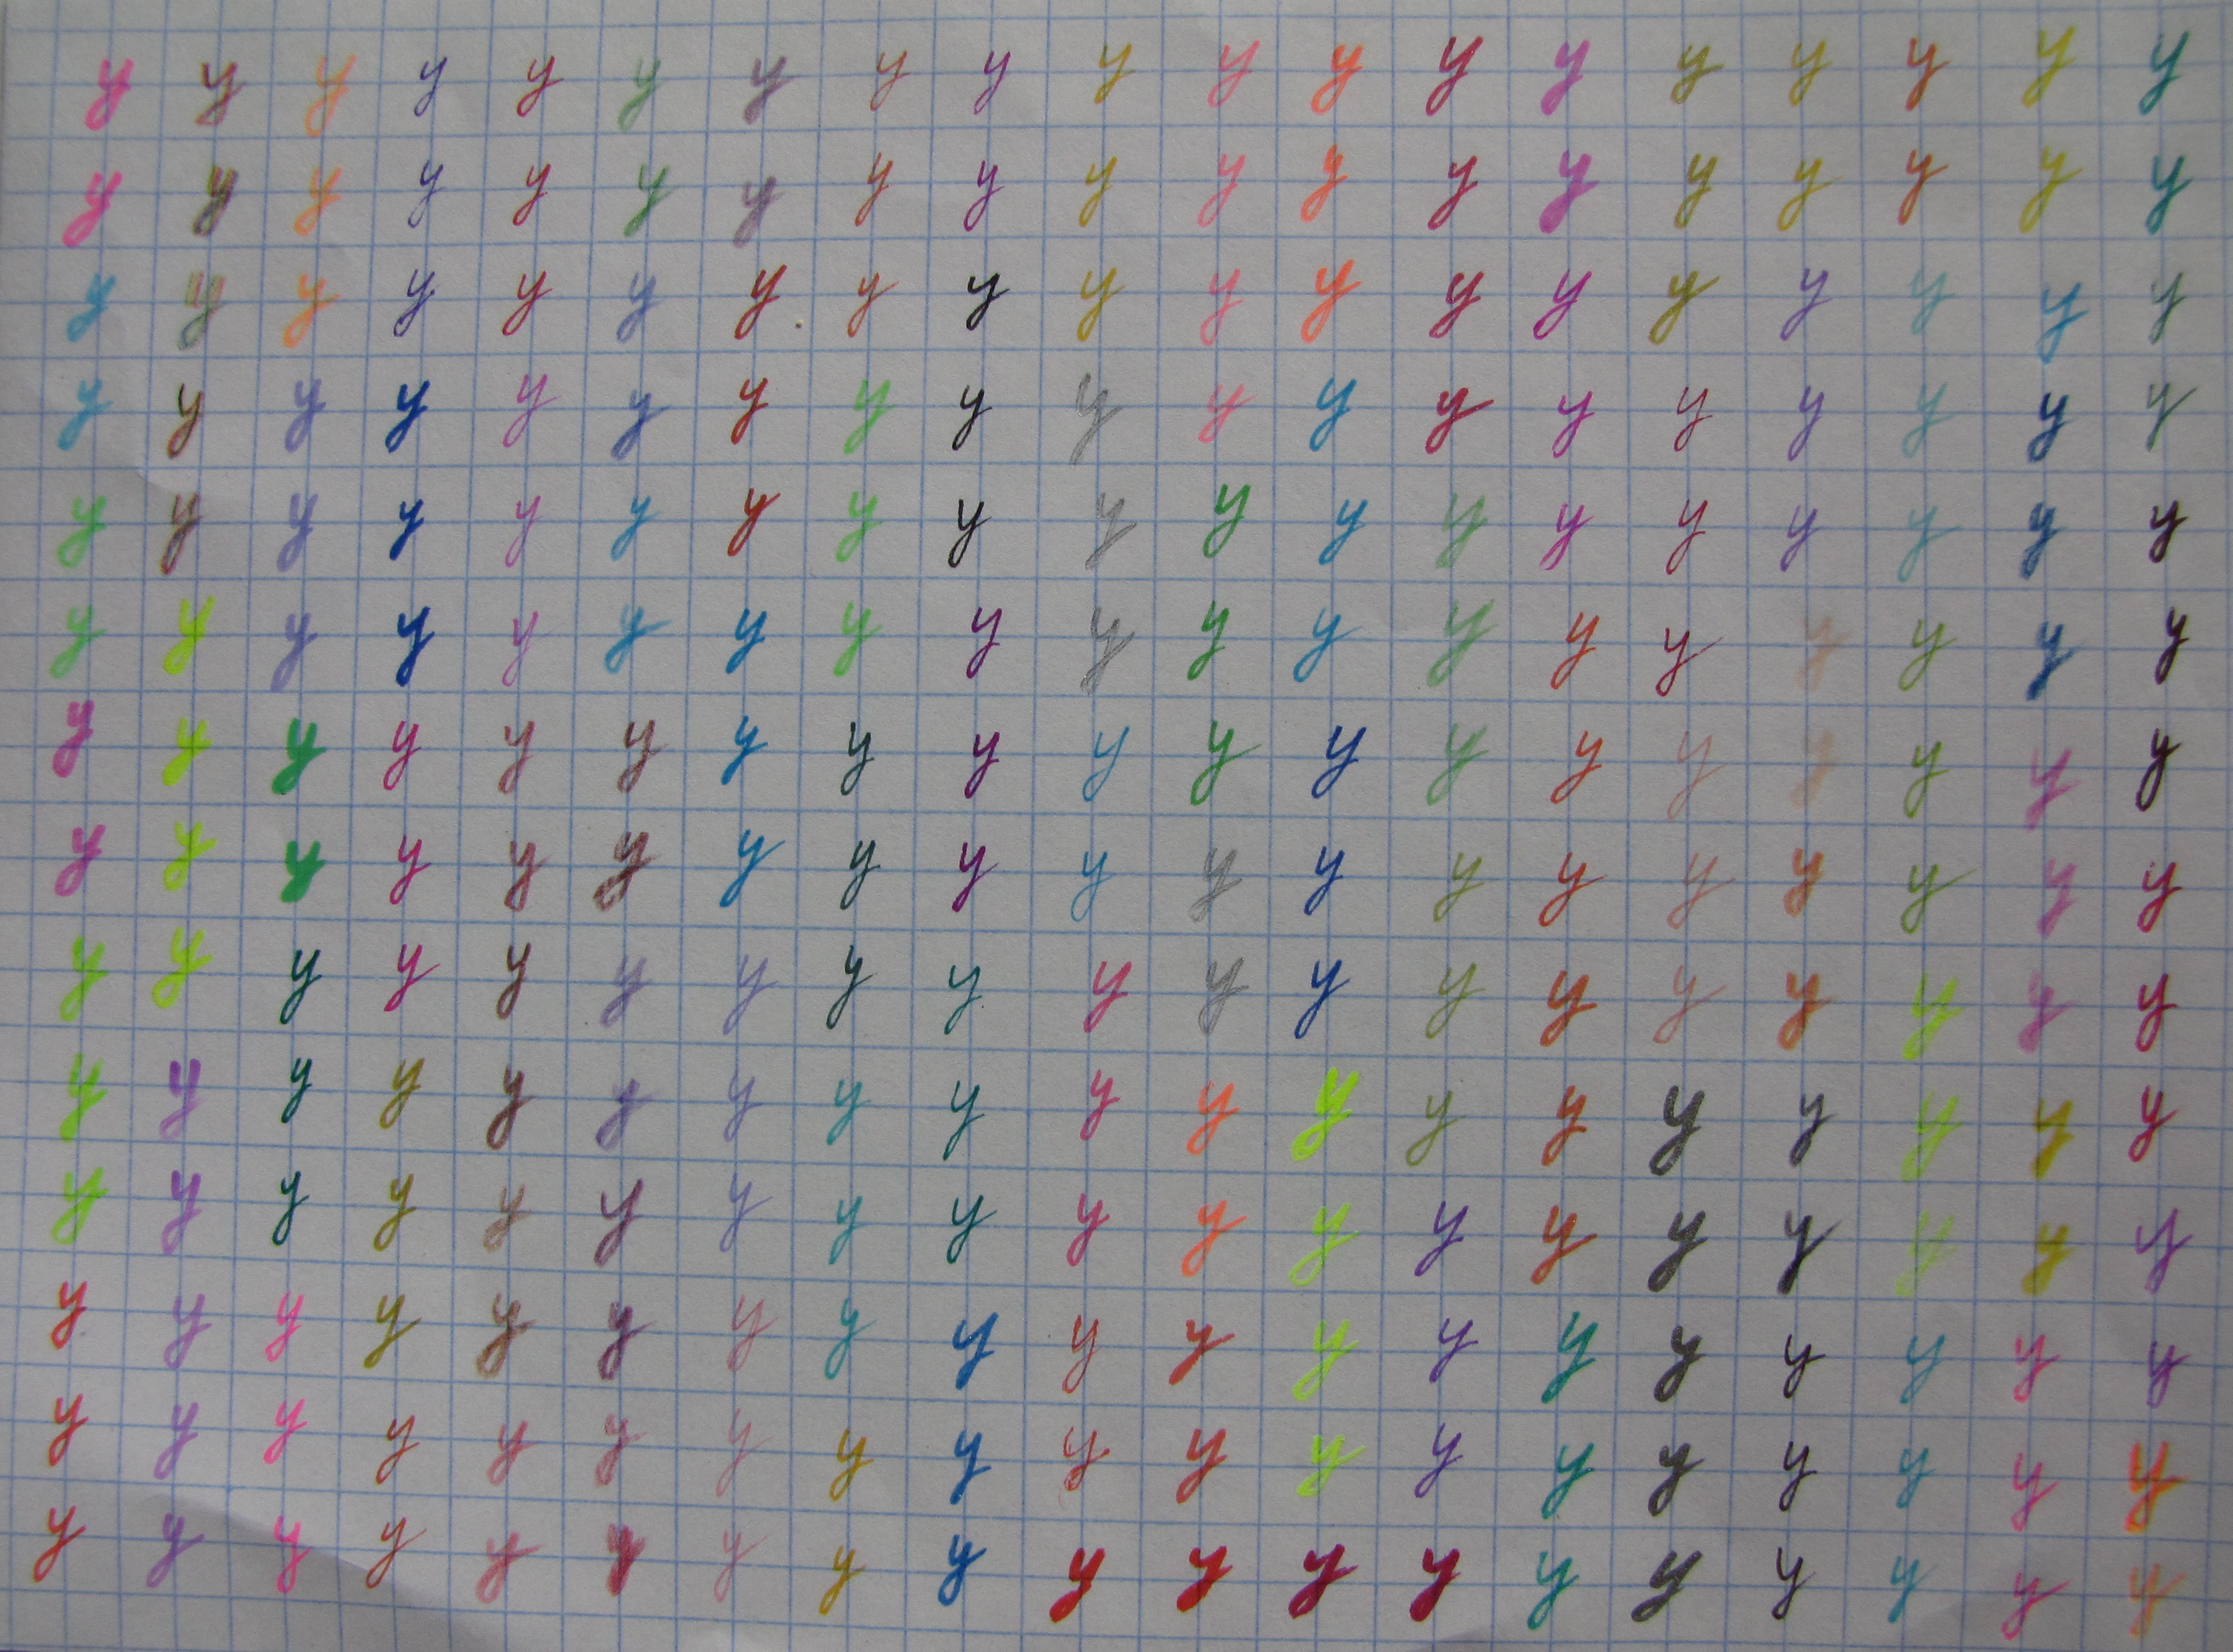 y y y y y y y y y y y y y y y y y y y
y y y y y y y y y y y y y y y y y y y
y y y y y y y y y y y y y y y y y y y
y y y y y y y y y y y y y y y y y y y
y y y y y y y y y y y y y y y y y y y
y y y y y y y y y y y y y y y y y y y
y y y y y y y y y y y y y y y y y y y
y y y y y y y y y y y y y y y y y y y
y y y y y y y y y y y y y y y y y y y
y y y y y y y y y y y y y y y y y y y
y y y y y y y y y y y y y y y y y y y
y y y y y y y y y y y y y y y y y y y
y y y y y y y y y y y y y y y y y y y
y y y y y y y y y y y y y y y y y y y